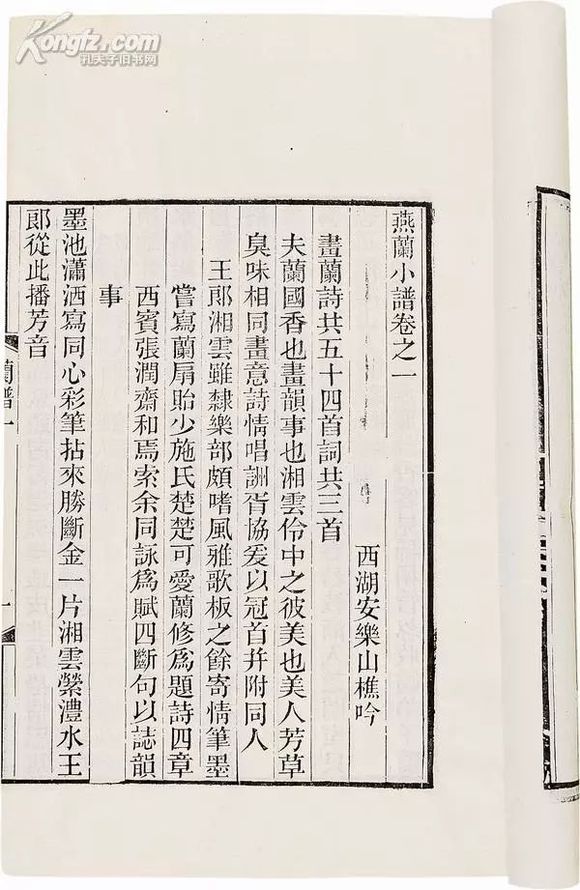 Kongfz.com
孔夫子旧书网
燕蘭小譜卷之一
西湖安樂山樵吟
畫蘭詩共五十四首詞共三首
夫蘭國香也畫韻事也湘雲伶中之彼美也美人芳草
臭味相同畫意詩情唱詶胥協爰以冠首并附同人
王郎湘雲雖隸樂部頗嗜風雅歌板之餘寄情筆墨
嘗寫蘭扇貽少施氏楚楚可愛蘭修爲題詩四章
西賓張潤齋和焉索余同詠爲賦四斷句以誌韻
事
墨池瀟洒寫同心彩筆拈來勝斷金一片湘雲縈澧水王
郎從此播芳音
蘭譜一
一